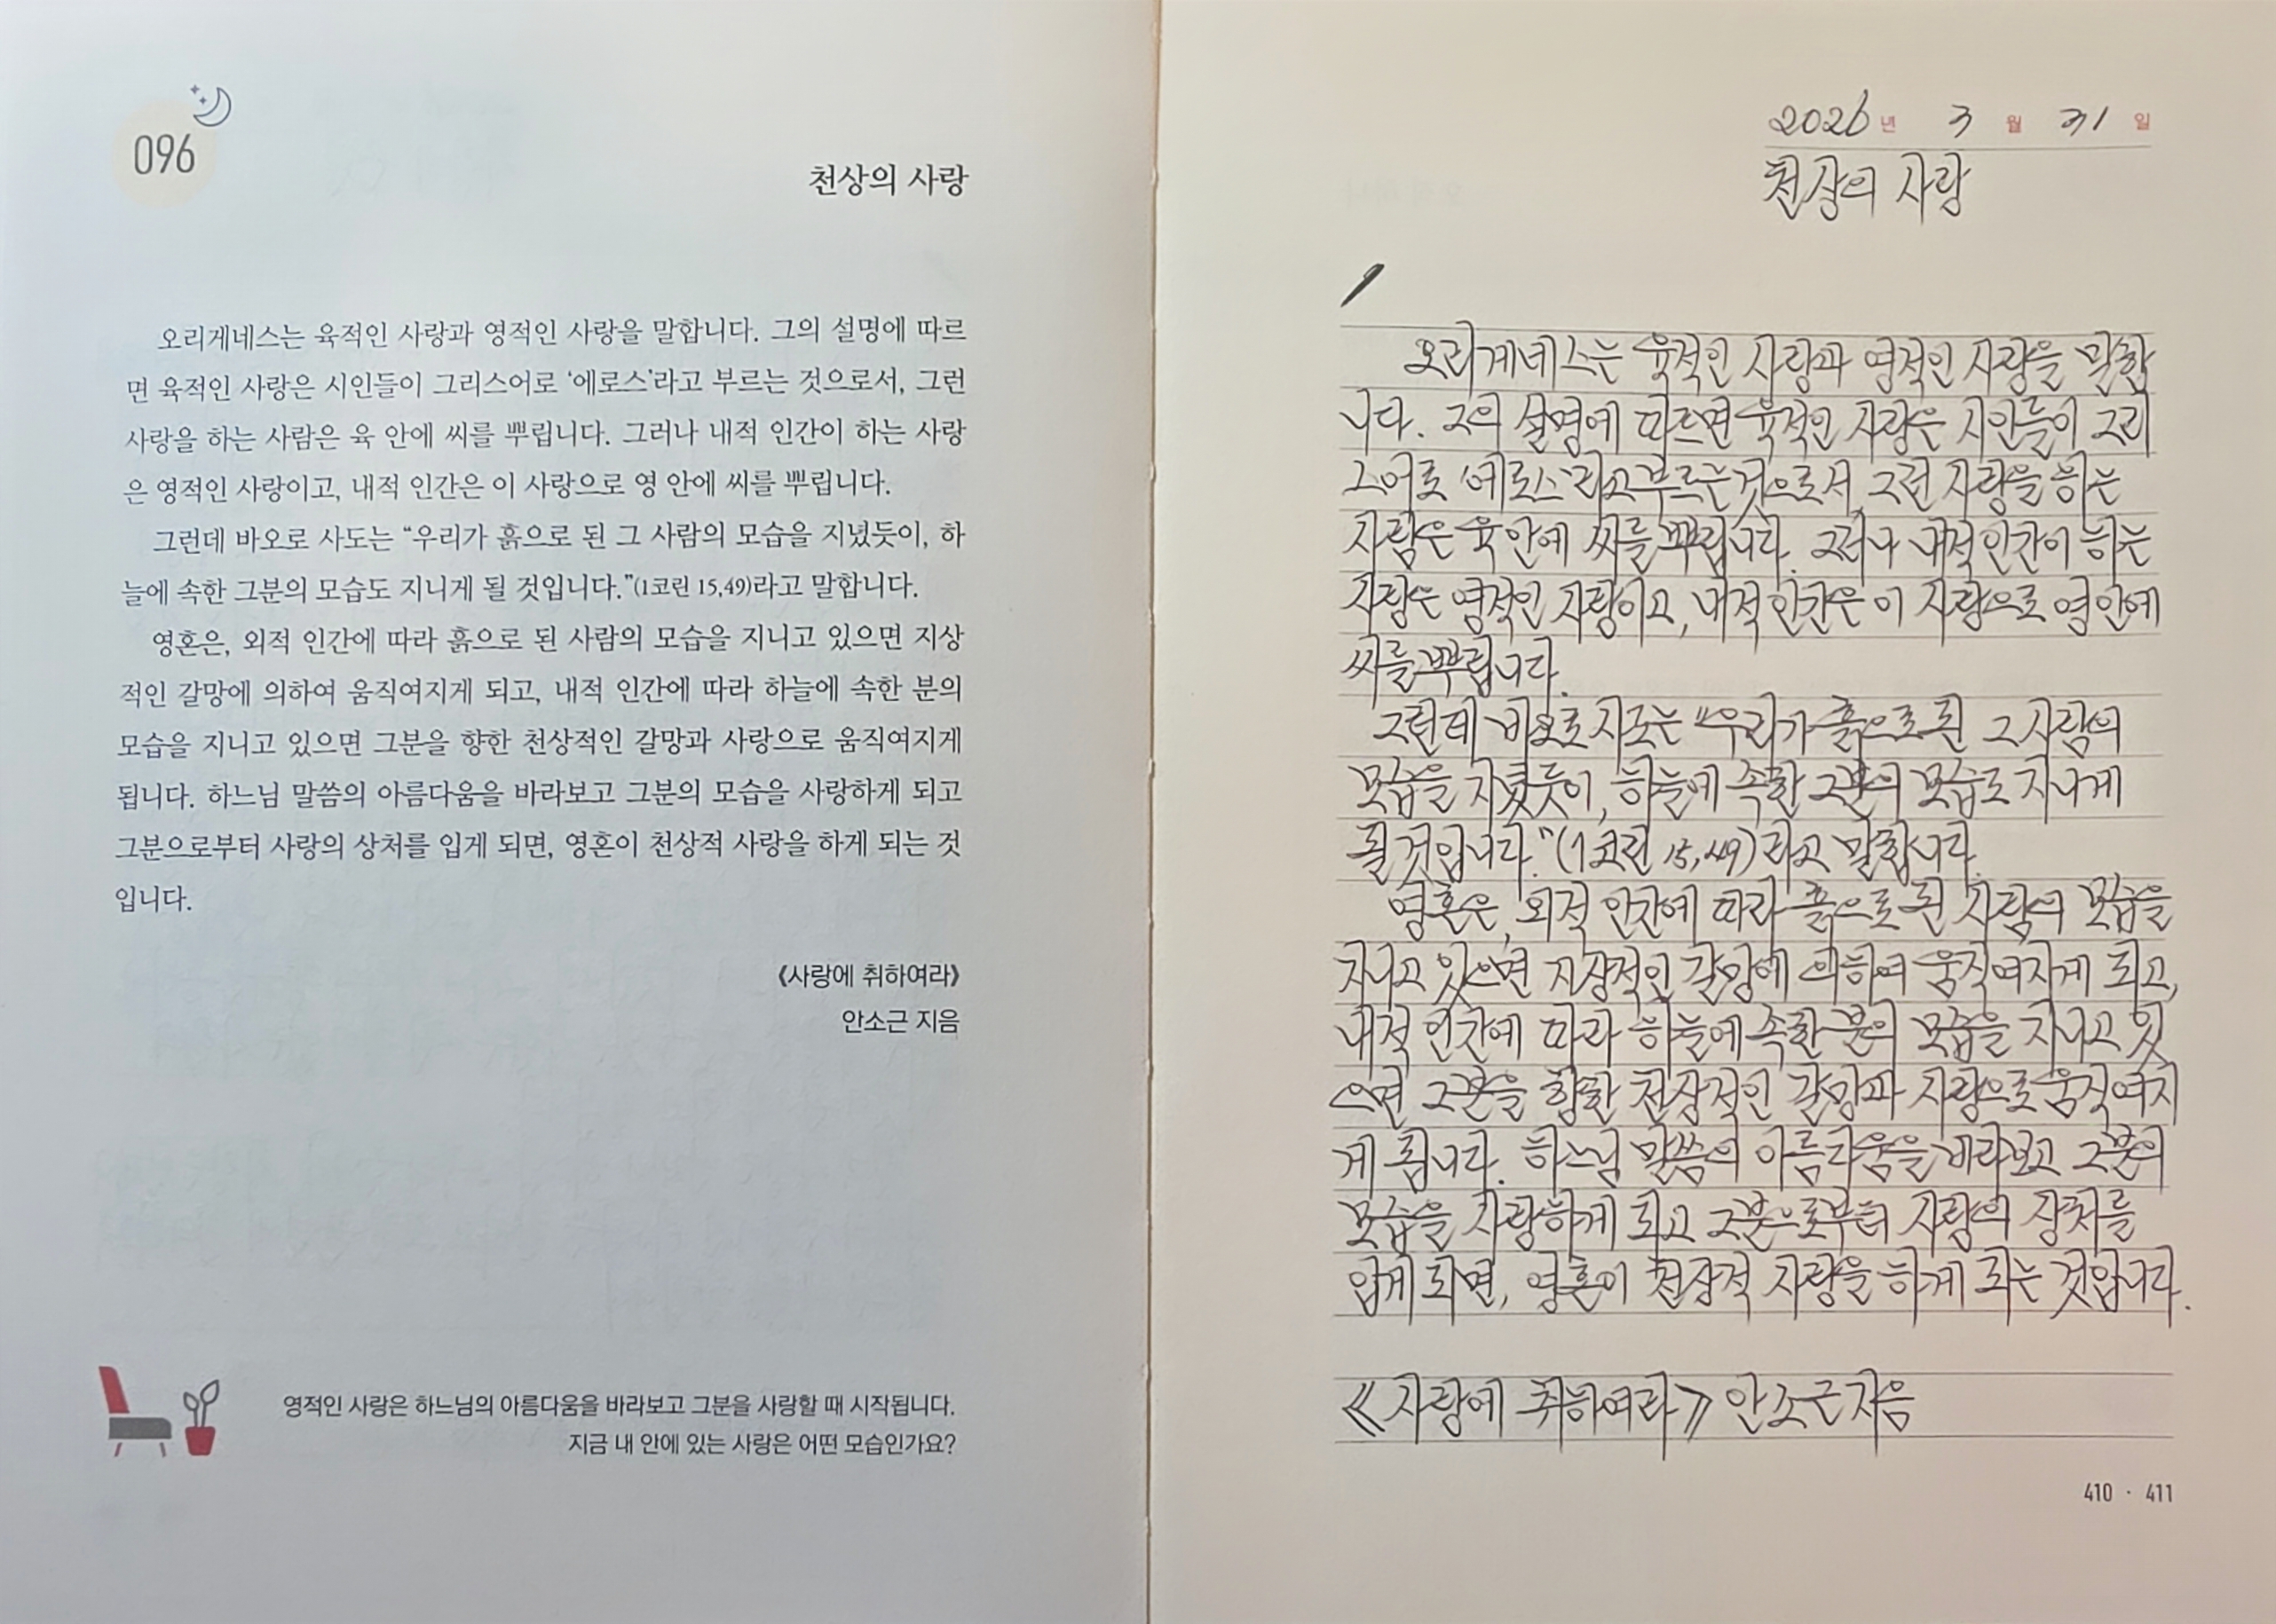 096
천상의 사랑
오리게네스는 육적인 사랑과 영적인 사랑을 말합니다. 그의 설명에 따르
면 육적인 사랑은 시인들이 그리스어로 ‘에로스’라고 부르는 것으로서, 그런
사랑을 하는 사람은 육 안에 씨를 뿌립니다. 그러나 내적 인간이 하는 사랑
은 영적인 사랑이고, 내적 인간은 이 사랑으로 영 안에 씨를 뿌립니다.
그런데 바오로 사도는 “우리가 흙으로 된 그 사람의 모습을 지녔듯이, 하
늘에 속한 그분의 모습도 지니게 될 것입니다.”(1코린 15,49)라고 말합니다.
영혼은, 외적 인간에 따라 흙으로 된 사람의 모습을 지니고 있으면 지상
적인 갈망에 의하여 움직여지게 되고, 내적 인간에 따라 하늘에 속한 분의
모습을 지니고 있으면 그분을 향한 천상적인 갈망과 사랑으로 움직여지게
됩니다. 하느님 말씀의 아름다움을 바라보고 그분의 모습을 사랑하게 되고
그분으로부터 사랑의 상처를 입게 되면, 영혼이 천상적 사랑을 하게 되는 것
입니다.
《사랑에 취하여라》
안소근 지음
영적인 사랑은 하느님의 아름다움을 바라보고 그분을 사랑할 때 시작됩니다.
지금 내 안에 있는 사랑은 어떤 모습인가요?
2026년 3월 31일
천상의 사랑
오리게네스는 육적인 사랑과 영적인 사랑을 말합
니다. 그의 설명에 따르면 육적인 사랑은 시인들이 그리
스어로 ‘에로스’라고 부르는 것으로서, 그런 사랑을 하는
사람은 육 안에 씨를 뿌립니다. 그러나 내적 인간이 하는
사랑은 영적인 사랑이고, 내적 인간은 이 사랑으로 영 안에
씨를 뿌립니다.
그런데 바오로 사도는 “우리가 흙으로 된 그 사람의
모습을 지녔듯이, 하늘에 속한 그분의 모습도 지니게
될 것입니다.”(1코린 15,49)라고 말합니다.
영혼은, 외적 인간에 따라 흙으로 된 사람의 모습을
지니고 있으면 지상적인 갈망에 의하여 움직여지게 되고,
내적 인간에 따라 하늘에 속한 분의 모습을 지니고 있
으면 그분을 향한 천상적인 갈망과 사랑으로 움직여지
게 됩니다. 하느님 말씀의 아름다움을 바라보고 그분의
모습을 사랑하게 되고 그분으로부터 사랑의 상처를
입게 되면, 영혼이 천상적 사랑을 하게 되는 것입니다.
《사랑에 취하여라》 안소근 지음
410 · 411